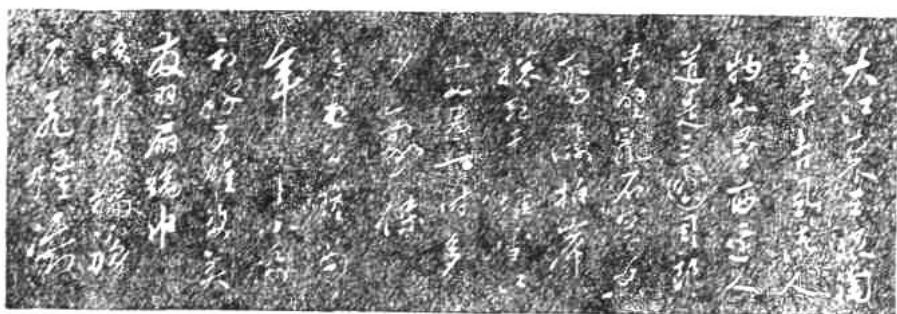 大江東去浪淘
盡千古風流人
物故壘西邊人
道是三國周郎
赤壁亂石穿空
濤拍岸
捲起千堆雪江
山如畫一時多
少豪傑
遙想公瑾當
年小喬
初嫁了雄姿英
發羽扇綸巾
談笑
灰飛煙滅